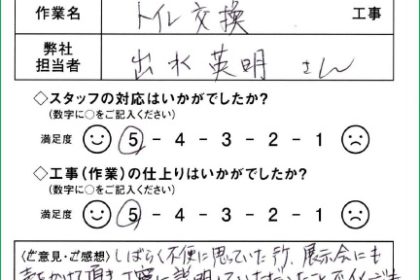 作業名 トイレ交換 工事
弊社担当者 出水英明 さん
◇スタッフの対応はいかがでしたか?
(数字に○をご記入ください)
満足度 5 - 4 - 3 - 2 - 1
◇工事(作業)の仕上りはいかがでしたか?
(数字に○をご記入ください)
満足度 5 - 4 - 3 - 2 - 1
〈ご意見・ご感想〉しばらく不便に思っていた所、展示会にも
声をかけて頂き丁寧に説明していただいたこと